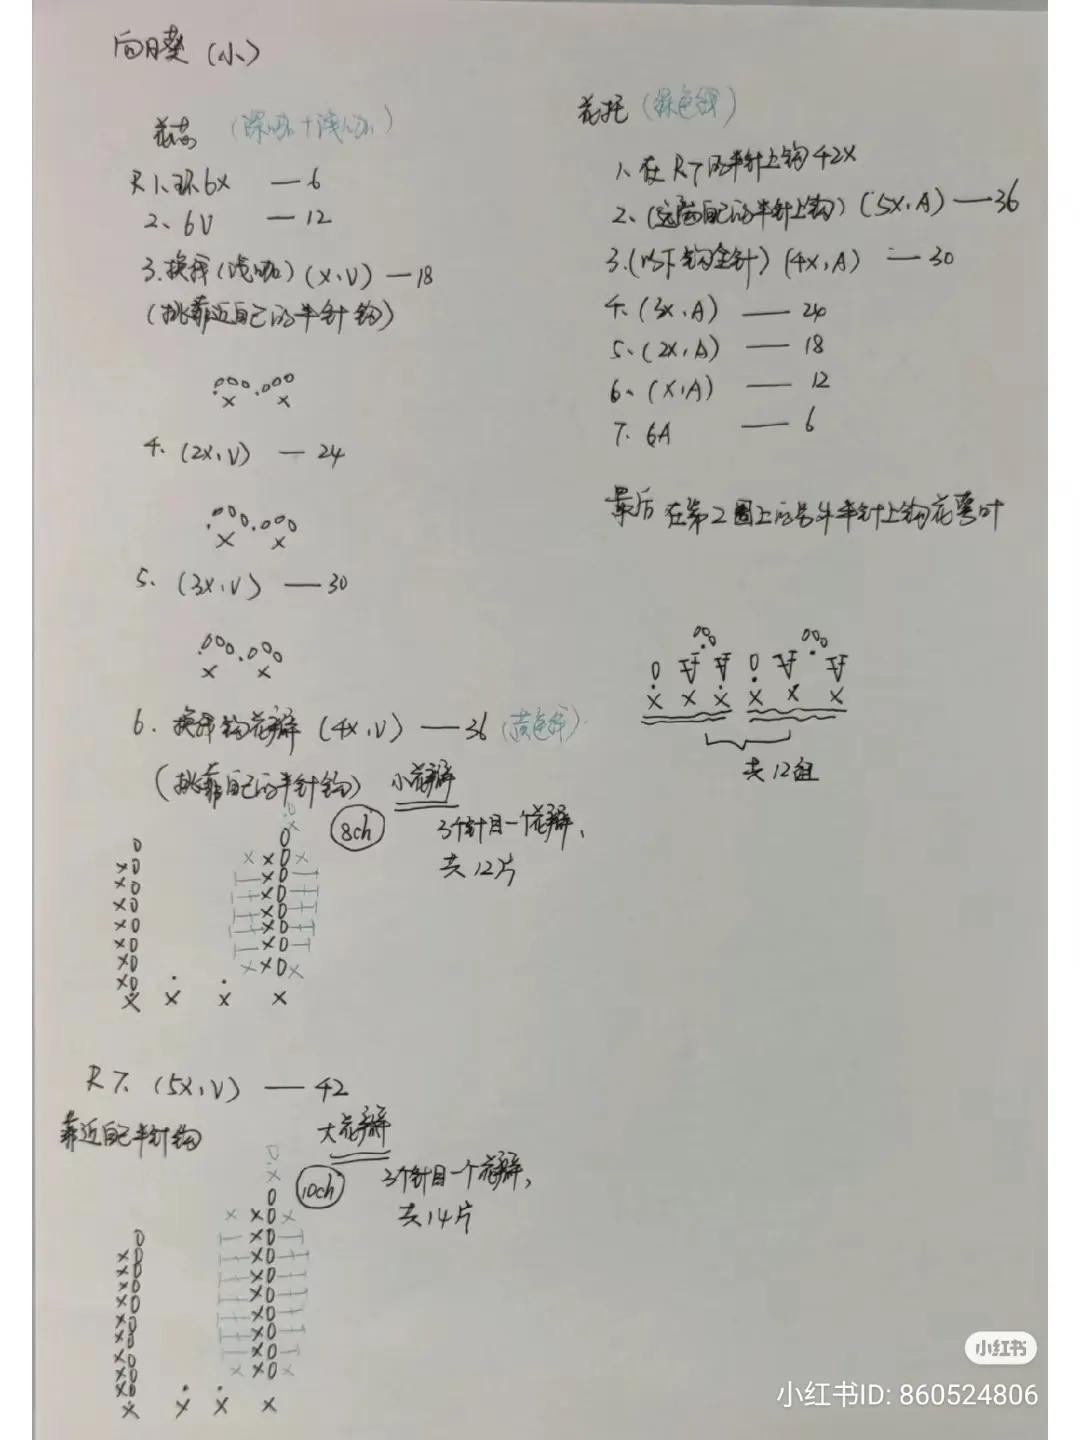 向日葵（小）
花芯（深咖+浅咖）
R 1、环6X — 6
2、6V — 12
3、换线（浅咖）（X，V）— 18
（挑靠近自己的半针钩）
4、（2X，V）— 24
5、（3X，V）— 30
6、换线钩花瓣（4X，V）— 36（黄色线）
（挑靠自己的半针钩）
小花瓣
8ch
3个针目一个花瓣，
共12片
R 7、（5X，V）— 42
靠近自己半针钩
大花瓣
10ch
3个针目一个花瓣，
共14片
花托（绿色线）
1、在R7的半针上钩42X
2、（远离自己的半针上钩）（5X，A）— 36
3、（以下钩全针）（4X，A）— 30
4、（3X，A）— 24
5、（2X，A）— 18
6、（X，A）— 12
7、6A — 6
最后在第2圈上的另外半针上钩花萼叶
共12组
小红书
小红书ID: 860524806